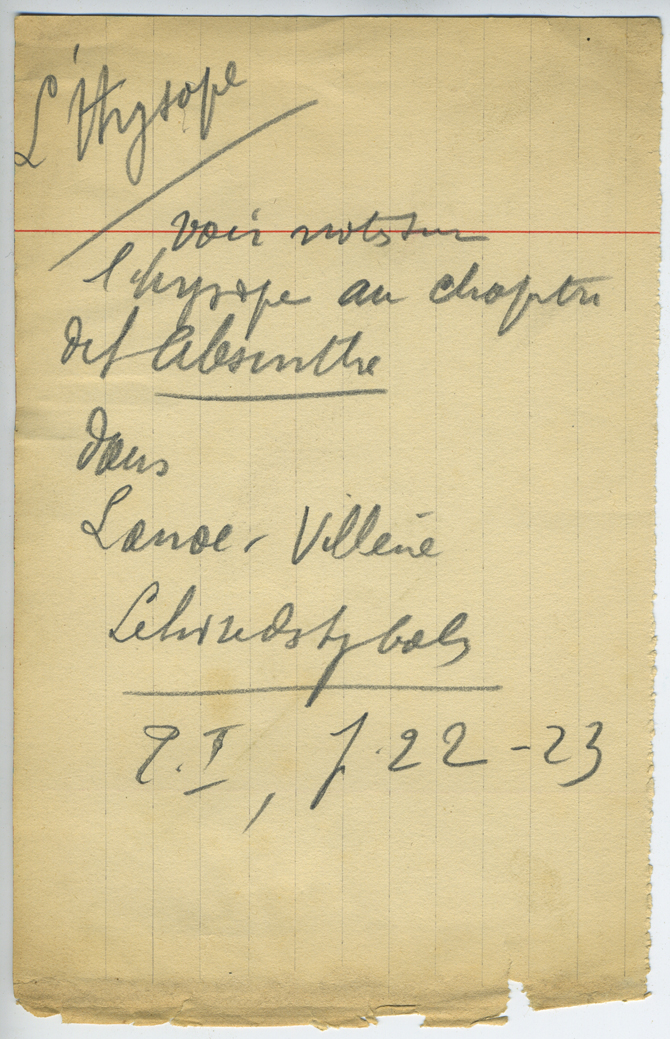 L'Hysope
voir notes sur
l'hysope au chapitre
de l'Absinthe
dans
Lanoe-Villène
Le livre des symboles
T. I, p. 22-23